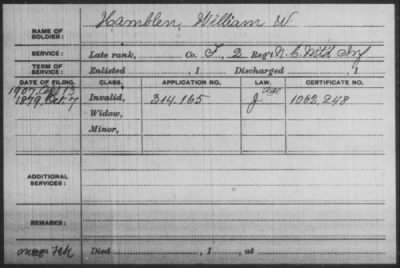 NAME OF SOLDIER: Hamblen, William W
SERVICE: Late rank, Co. I, 2 Reg't N.C. Mtd Inf
TERM OF SERVICE: Enlisted , 1 Discharged , 1
DATE OF FILING. CLASS. APPLICATION NO. LAW. CERTIFICATE NO.
1907, 13
1879, Oct. 7 Invalid, 314.165 J age 1062,248
Widow,
Minor,
ADDITIONAL SERVICES:
REMARKS:
Died , 1 , at